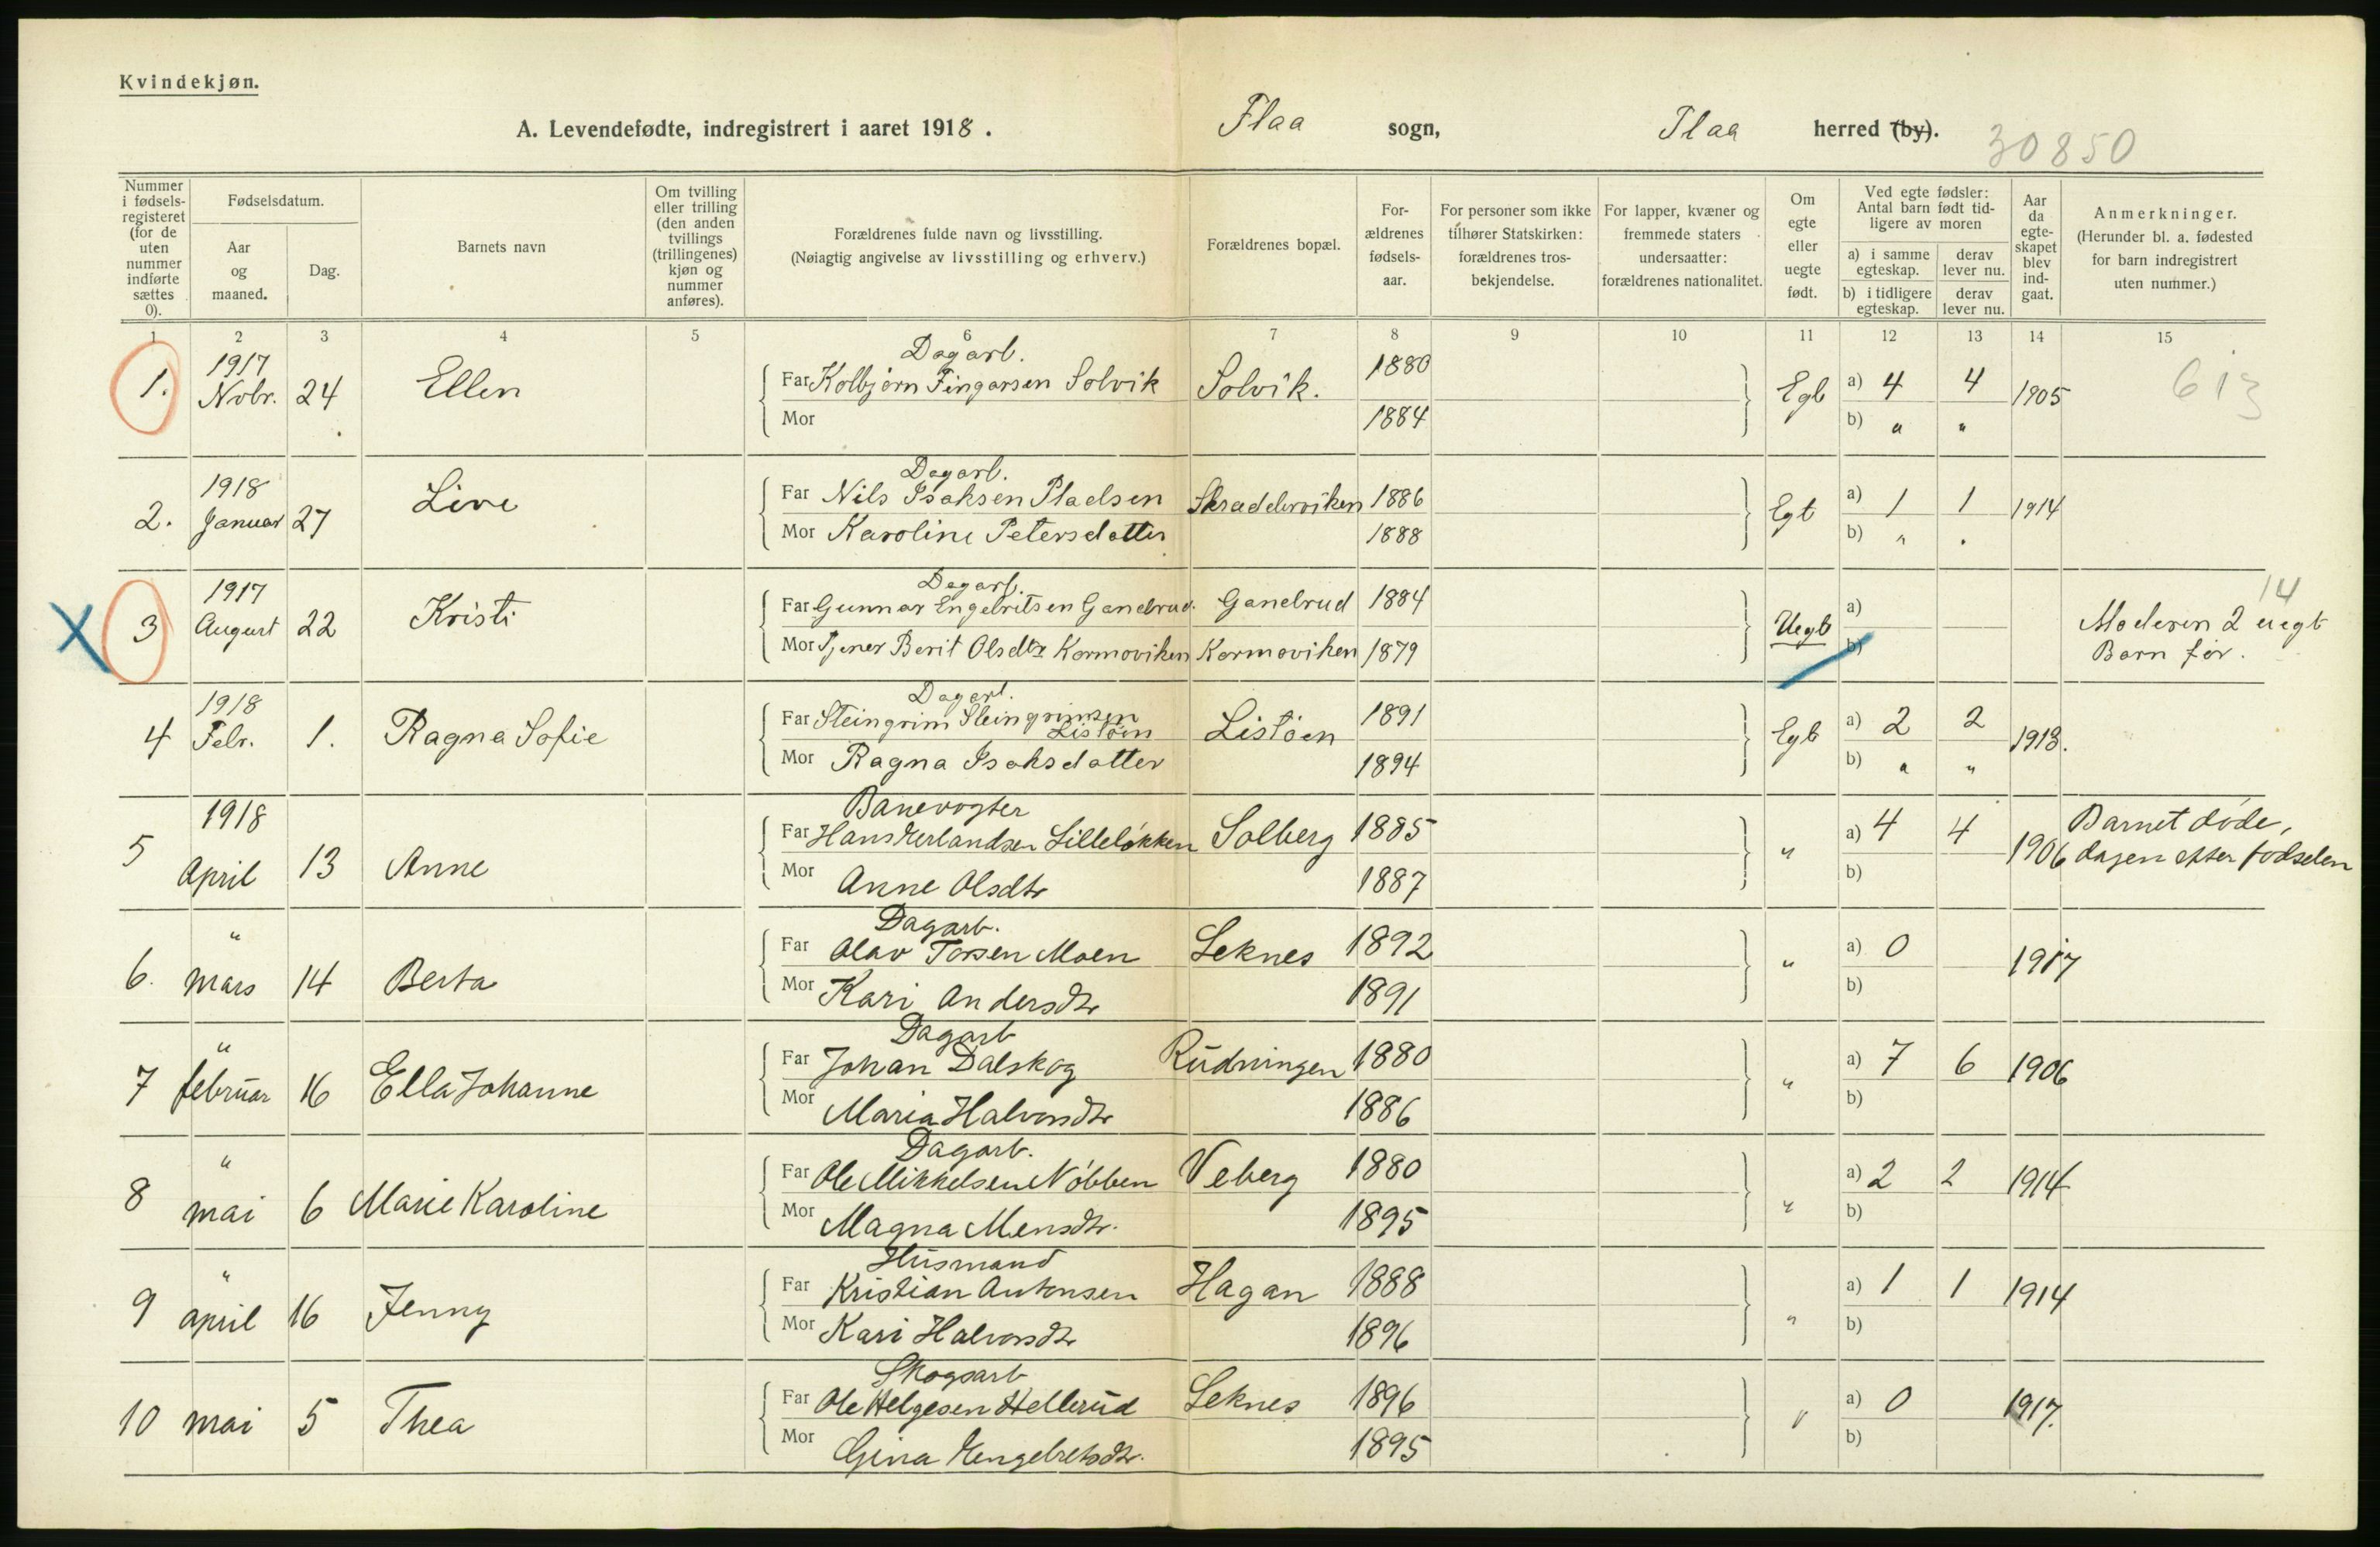 Kvindekjøn.
A. Levendefødte, indregistrert i aaret 1918. Flaa sogn, Flaa herred (by).
30850
Nummer i fødsels-registeret (for de uten nummer indførte sættes 0).
Fødselsdatum.
Aar og maaned.
Dag.
Barnets navn
Om tvilling eller trilling (den anden tvillings (trillingenes) kjøn og nummer anføres).
Forældrenes fulde navn og livsstilling.
(Nøiagtig angivelse av livsstilling og erhverv.)
Forældrenes bopæl.
For-ældrenes fødsels-aar.
For personer som ikke tilhører Statskirken: forældrenes tros-bekjendelse.
For lapper, kvæner og fremmede staters undersaatter: forældrenes nationalitet.
Om egte eller uegte født.
Ved egte fødsler: Antal barn født tid-ligere av moren
a) i samme egteskap. derav lever nu.
b) i tidligere egteskap. derav lever nu.
Aar da egte-skapet blev ind-gaat.
Anmerkninger.
(Herunder bl. a. fødested for barn indregistrert uten nummer.)
1 2 3 4 5 6 7 8 9 10 11 12 13 14 15
1917 Dagarb.
1. Nobr. 24 Ellen Far Kolbjørn Fingarsen Solvik Solvik. 1880 Egt a) 4 4 1905 613
Mor 1884 b) " "
1918 Dagarb.
2. Januar 27 Live Far Nils Isaksen Pladsen Skraddervikan 1886 Egt a) 1 1 1914
Mor Karoline Petersdatter 1888 b) " "
1917 Dagarb. 14
3 August 22 Kristi Far Gunnar Engebritsen Gandrud. Gandrud 1884 Uegt a) Moderen 2 uegt
Mor Tjener Berit Olsdtr Kormoviken Kormoviken 1879 b) Barn før.
1918 Dagarb.
4 Febr. 1. Ragna Sofie Far Steingrim Steingrimsen Listøen Listøen 1891 Egt a) 2 2 1913.
Mor Ragna Isaksdatter 1894 b) " "
1918 Banevogter
5 April 13 Anne Far Hans Erlandsen Lilleløkken Solberg 1885 " a) 4 4 1906 Barnet døde,
dagen efter fødselen
Mor Anne Olsdtr 1887 b)
" Dagarb.
6. mars 14 Berta Far Olav Torsen Moen Leknes 1892 " a) 0 1917
Mor Kari Andersdtr 1891 b)
" Dagarb
7 februar 16 Ella Johanne Far Johan Dalskog Rudningen 1880 " a) 7 6 1906
Mor Maria Halvorsdtr 1886 b)
" Dagarb.
8 mai 6 Marie Karoline Far Ole Mikkelsen Nøbben Veberg 1880 " a) 2 2 1914
Mor Magna Mensdtr. 1895 b)
" Husmand
9 april 16 Jenny Far Kristian Antonsen Hagan 1888 " a) 1 1 1914
Mor Kari Halvorsdtr 1896 b)
Skogsarb
10 mai 5 Thea Far Ole Helgesen Hellerud Leknes 1896 " a) 0 1917.
Mor Gina Engebretsdtr. 1895 b)